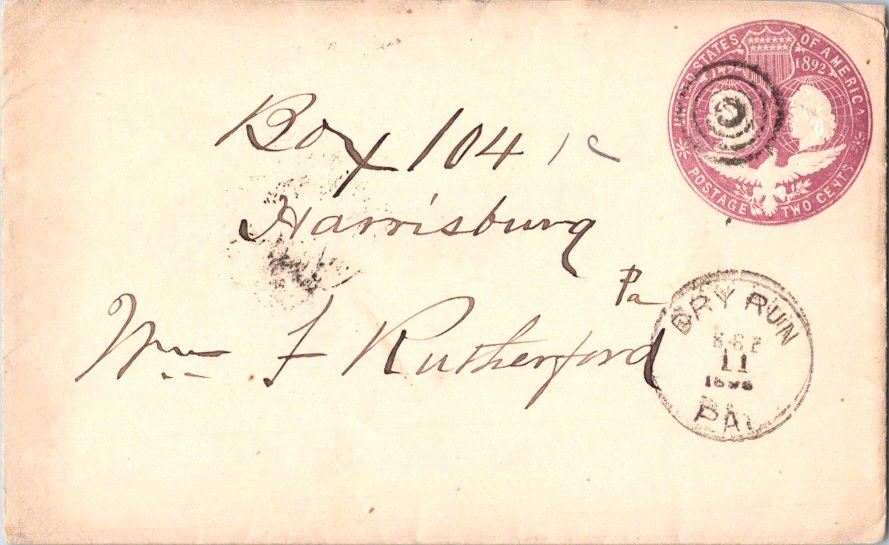 UNITED STATES OF AMERICA
1892
POSTAGE TWO CENTS
Box 104
Harrisburg
Pa
Wm F Rutherford
DRY RUN
11
PA.